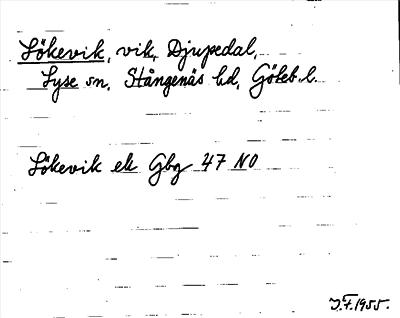 Sökevik, vik, Djupedal,
Lyse sn. Stångenäs hd, Göteb. l.
Sökevik ek Gbg 47 NO
J.F. 1955.